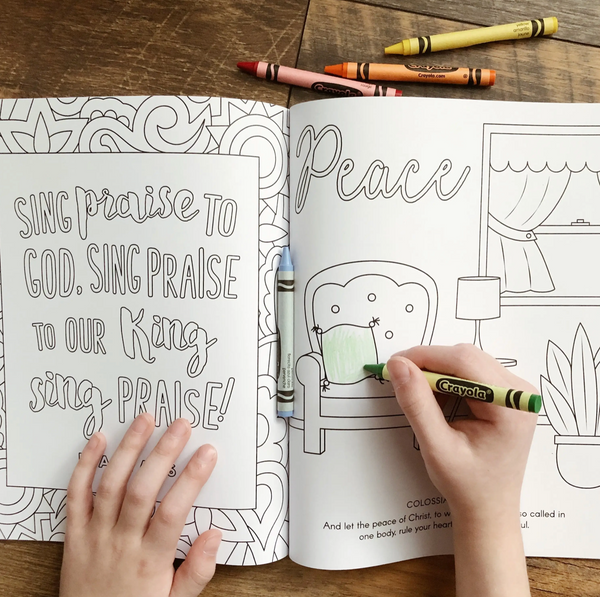 SING praise TO
GOD, SING PRAISE
TO OUR King
sing PRAISE!
Peace
COLOSSIA
And let the peace of Christ, to w so called in
one body, rule your heart ul.
Crayola
Crayola
Crayola.com
Crayola